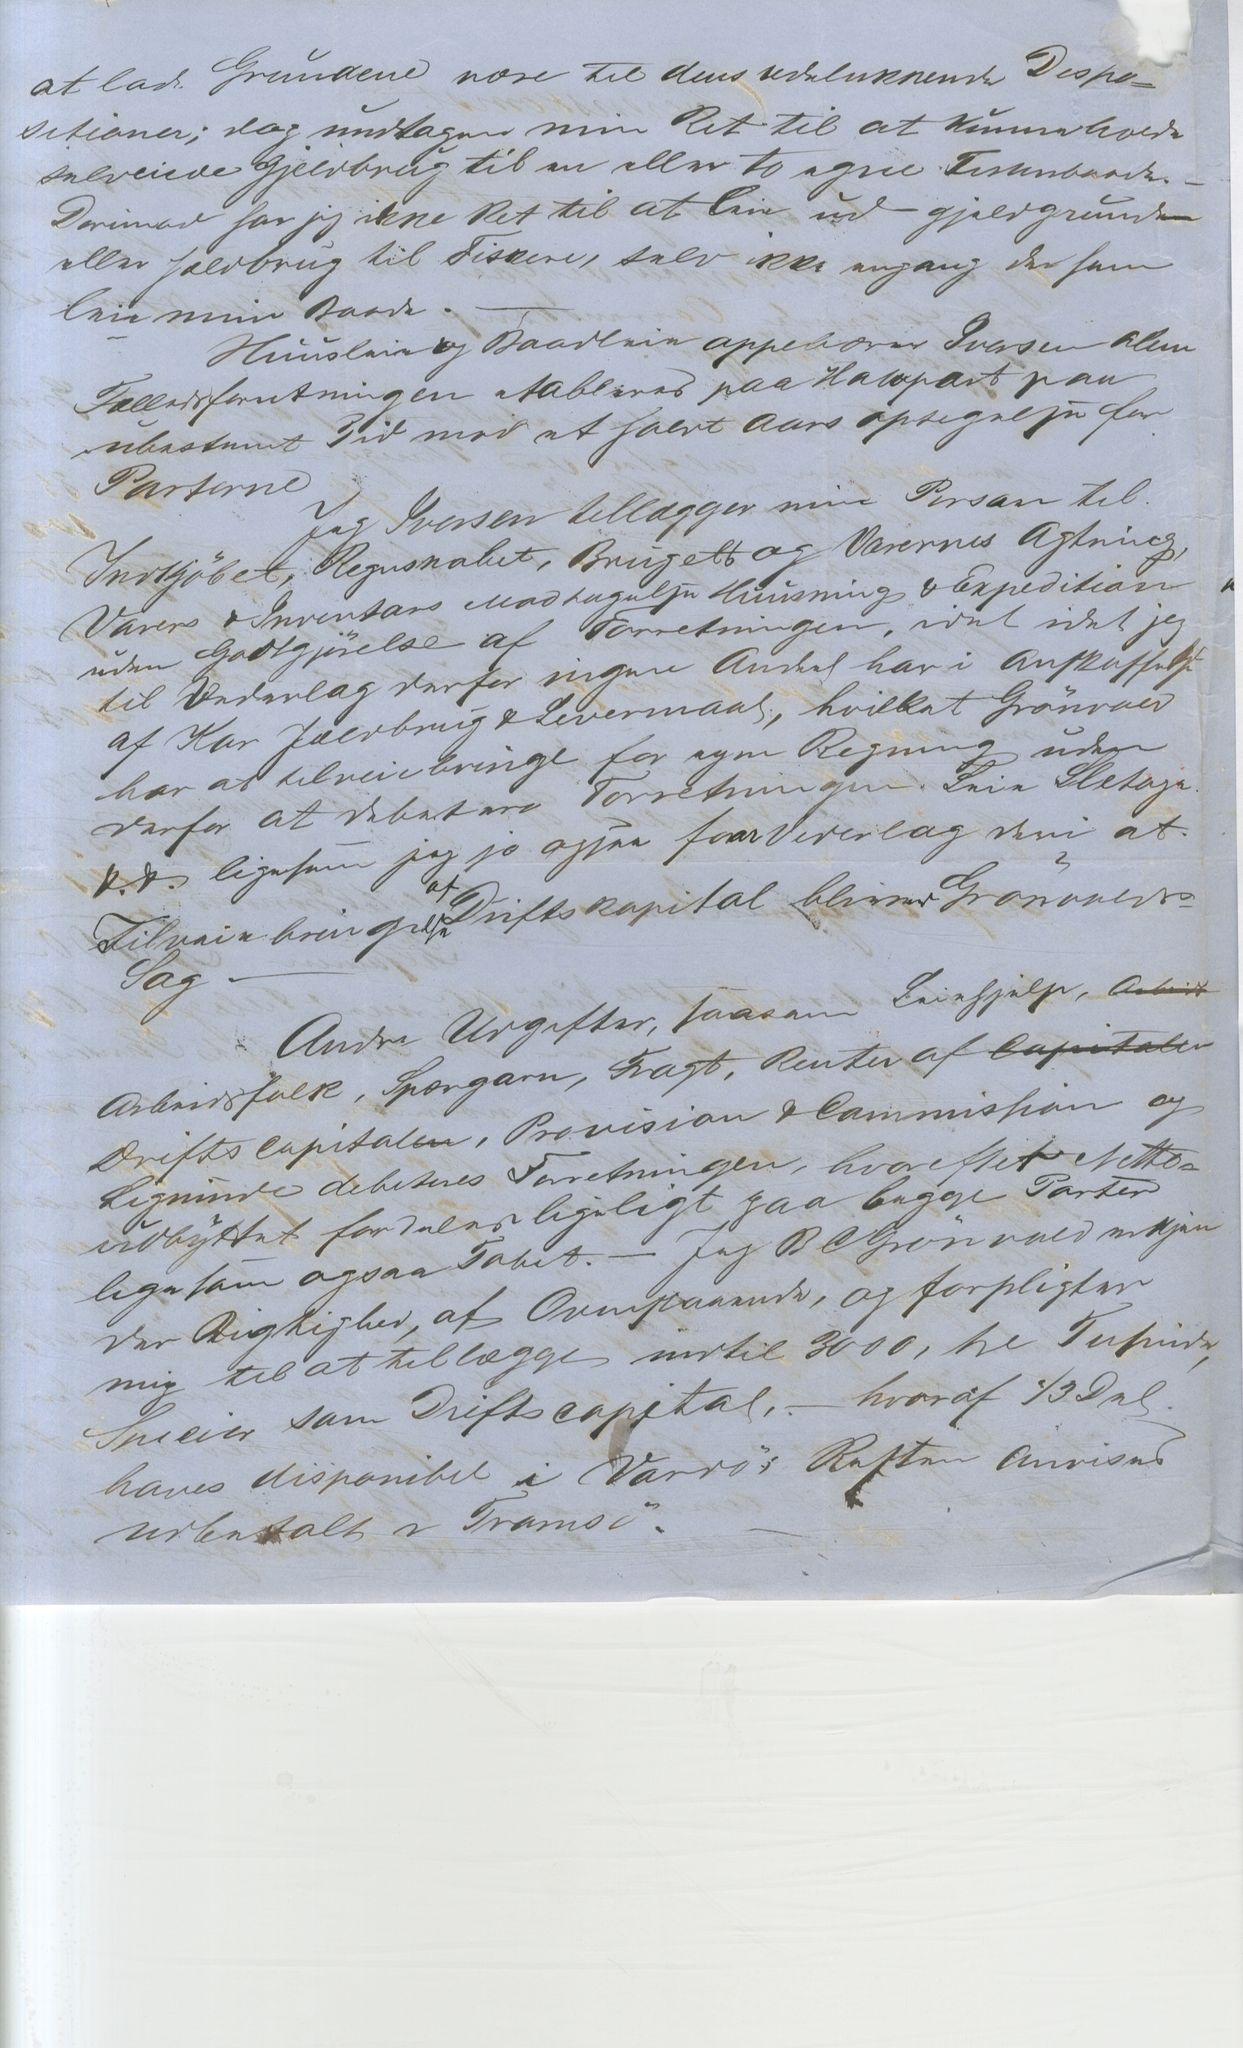 at lade Grundene være til dens udelukkende Dispo-
sitioner; dog undtagen min Ret til at kunne holde
selveiede Gjeldbrug til en eller to egne Fiskerbaade. -
Derimod har jeg ikke Ret til at leie ud gjeldgrunde
eller Jeldbrug til Fiskere, selv ikke engang der som
leie mine Baade. -
Huusleie og Baadleie oppebærer Iversen alene
Fælledsforretningen etableres paa Halvpart paa
ubestemt Tid med et halvt Aars opsigelse for
Parterne
Jeg Iversen tillægger min Person til
Indkjöbet, Regnskabet, Bruget og Varernes Agtning,
Varers & Inventars Modtagelse Huusning & Expedition
uden Godtgjörelse af Forretningen, idet idet jeg
til Vederlag derfor ingen Andeel har i Anskaffelse
af Kar Jeldbrug & Levermaal, hvilket Grönvold
har at tilveiebringe for egen Regning uden
derfor at debitere Forretningen Leie Sletage
&. &. ligesom jeg jo ogsaa faar Vederlag deri at
Tilveiebringelse af Driftskapital bliver Grönvolds
Sag -
Andre Udgifter, saasom Leiehjelp, Arbeids
Arbeidsfolk, Spærgarn, Fragt, Renter af Capitalen
Driftscapitalen, Provision & Commission og
Lignende debiteres Forretningen, hvorefter Netto-
udbyttet fordeles ligeligt paa begge Parter
ligesom ogsaa Tabet. - Jeg B C Grönvold erkjen
der Rigtighed, af Ovenstaaende, og forpligter
mig til at tillægge indtil 3000, tre Tusinde,
Specier som Driftscapital, - hvoraf 1/3 Deel
haves disponibel i Vardö; Resten anvises
udbetalt i Tromsö. -